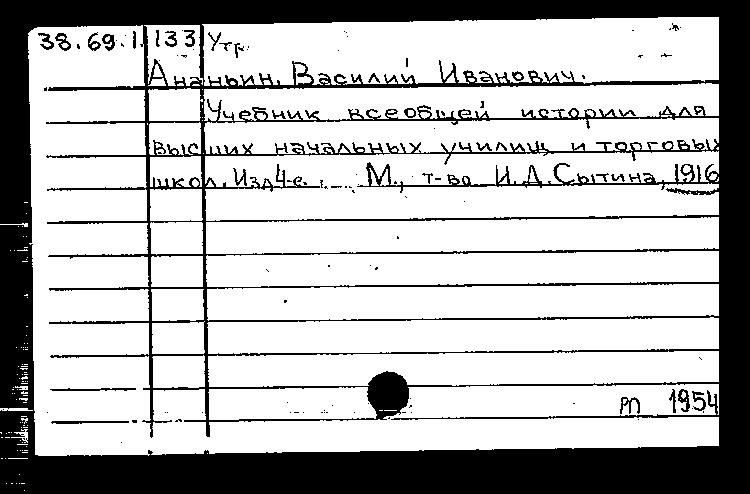 38.69.1.133 Утр.
Ананьин, Василий Иванович.
Учебник всеобщей истории для
высших начальных училищ и торговых
школ. Изд 4-е. М., т-во И.Д. Сытина, 1916
РП 1954